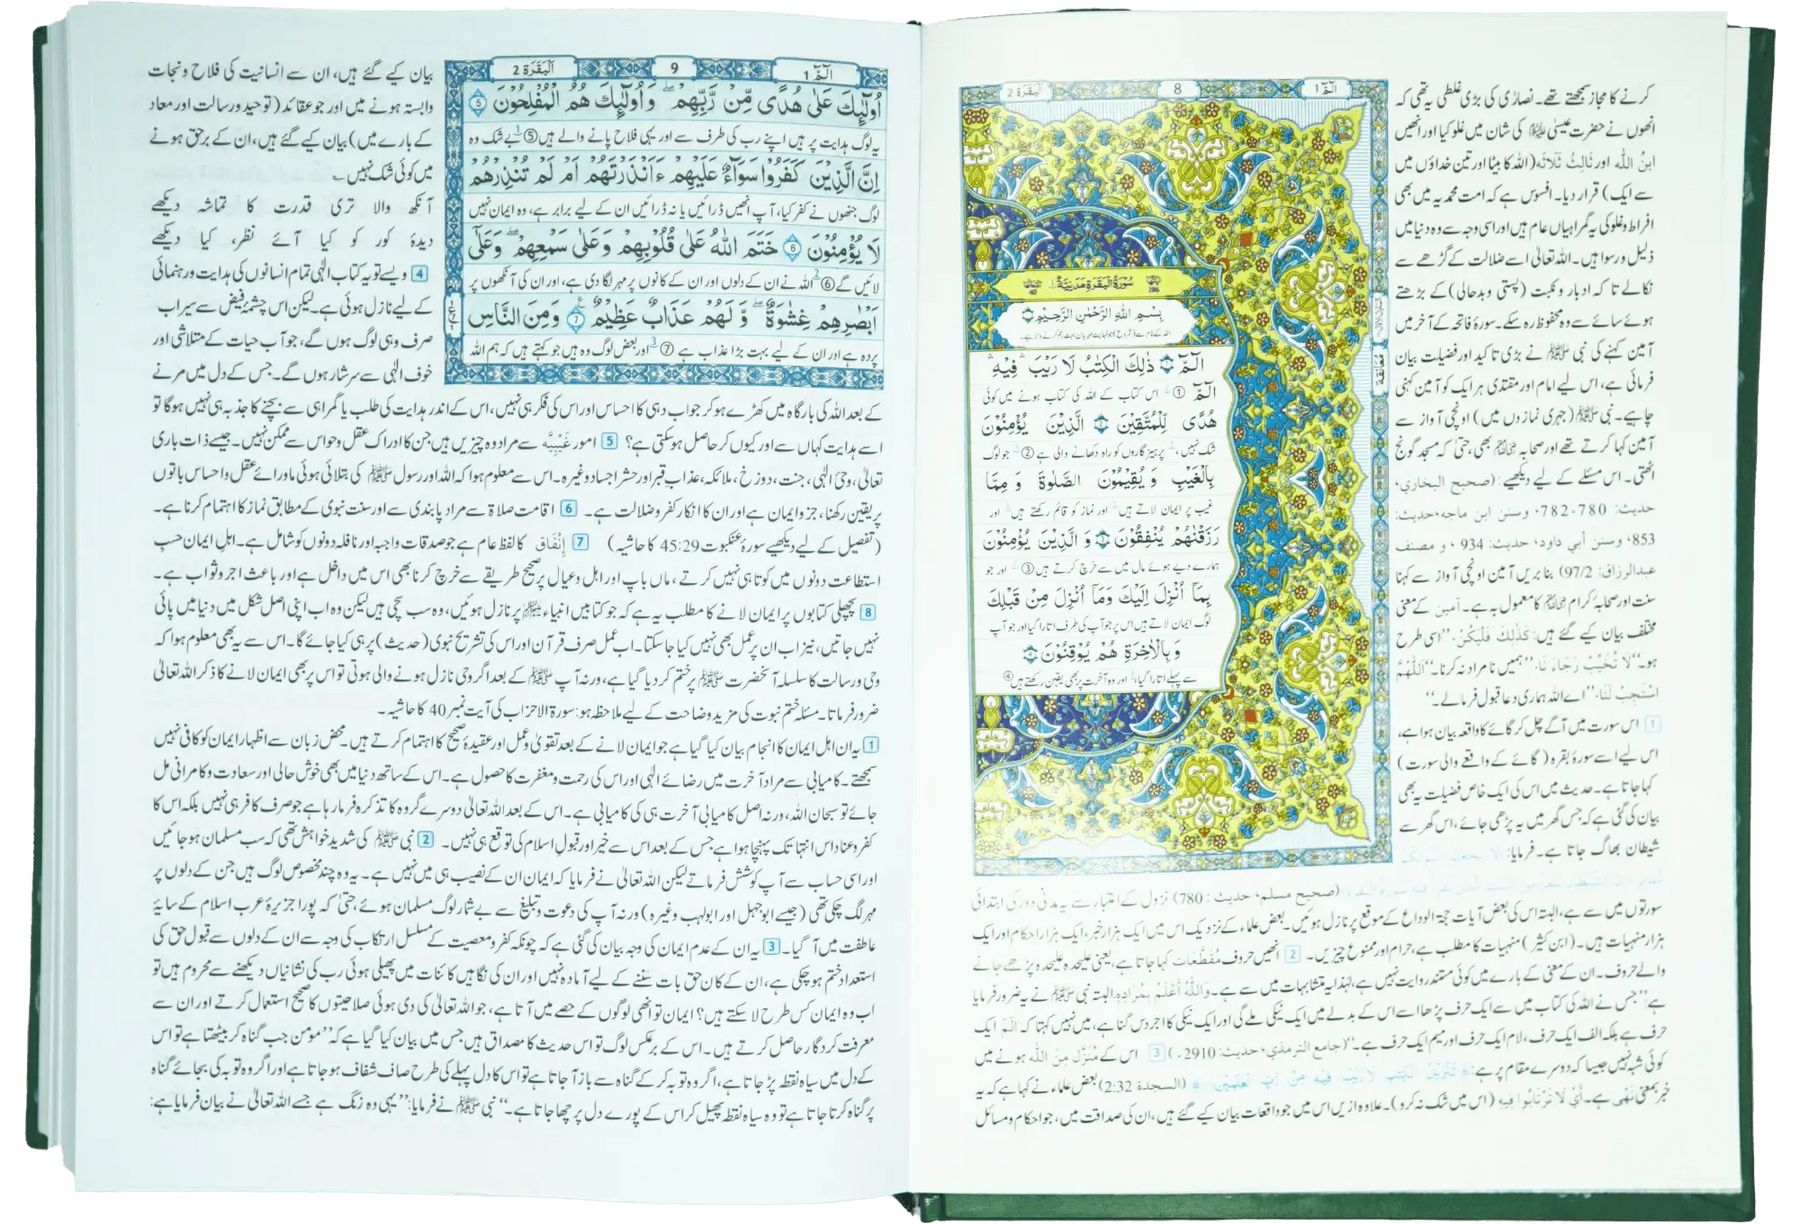 الٓمّٓ 1
8
اَلْبَقَرَة 2
سُوْرَةُ الْبَقَرَةِ مَدَنِيَّةٌ
بِسْمِ اللّٰهِ الرَّحْمٰنِ الرَّحِيْمِ
الٓمّٓ ۚ ذٰلِكَ الْكِتٰبُ لَا رَيْبَ ۛ فِيْهِ ۛ
الٓمّٓ ① اس کتاب کے اللہ کی کتاب ہونے میں کوئی
هُدًى لِّلْمُتَّقِيْنَ ② الَّذِيْنَ يُؤْمِنُوْنَ
شک نہیں، پرہیزگاروں کو راہ دکھانے والی ہے ② جو لوگ
بِالْغَيْبِ وَ يُقِيْمُوْنَ الصَّلٰوةَ وَ مِمَّا
غیب پر ایمان لاتے ہیں اور نماز کو قائم رکھتے ہیں اور
رَزَقْنٰهُمْ يُنْفِقُوْنَ ③ وَ الَّذِيْنَ يُؤْمِنُوْنَ
ہمارے دیے ہوئے مال میں سے خرچ کرتے ہیں ③ اور جو
بِمَآ اُنْزِلَ اِلَيْكَ وَمَآ اُنْزِلَ مِنْ قَبْلِكَ
لوگ ایمان لاتے ہیں اس پر جو آپ کی طرف اتارا گیا اور جو آپ
وَ بِالْاٰخِرَةِ هُمْ يُوْقِنُوْنَ ④
سے پہلے اتارا گیا، اور وہ آخرت پر بھی یقین رکھتے ہیں ④
معانقة
کرنے کا مجاز سمجھتے تھے۔ نصارٰی کی بڑی غلطی یہ تھی کہ
انھوں نے حضرت عیسیٰ علیہ السلام کی شان میں غلو کیا اور انھیں
ابنُ اللّٰہ اور ثَالِثُ ثَلَاثَہ (اللہ کا بیٹا اور تین خداؤں میں
سے ایک) قرار دیا۔ افسوس ہے کہ امت محمدیہ میں بھی
افراط و غلو کی یہ گمراہیاں عام ہیں اور اسی وجہ سے وہ دنیا میں
ذلیل و رسوا ہیں۔ اللہ تعالیٰ اسے ضلالت کے گڑھے سے
نکالے تا کہ ادبار و نکبت (پستی و بدحالی) کے بڑھتے
ہوئے سائے سے وہ محفوظ رہ سکے۔ سورۂ فاتحہ کے آخر میں
آمین کہنے کی نبی ﷺ نے بڑی تاکید اور فضیلت بیان
فرمائی ہے، اس لیے امام اور مقتدی ہر ایک کو آمین کہنی
چاہیے۔ نبی ﷺ (جہری نمازوں میں) اونچی آواز سے
آمین کہا کرتے تھے اور صحابہ بھی، حتیٰ کہ مسجد گونج
اٹھتی۔ اس مسئلے کے لیے دیکھیے: (صحیح البخاري،
حدیث: 780-782، وسنن ابن ماجه، حدیث:
853، وسنن أبي داود، حدیث: 934، و مصنف
عبدالرزاق: 97/2) بنا بریں آمین اونچی آواز سے کہنا
سنت اور صحابہ کرام کا معمول بہ ہے۔ آمین کے معنی
مختلف بیان کیے گئے ہیں: كَذٰلِكَ فَلْيَكُنْ۔ ”اسی طرح
ہو۔“ لَا تُخَيِّبْ رَجَاءَنَا۔ ”ہمیں نامراد نہ کرنا۔“ اَللّٰهُمَّ
اسْتَجِبْ لَنَا۔ ”اے اللہ ہماری دعا قبول فرما لے۔“
1 اس سورت میں آگے چل کر گائے کا واقعہ بیان ہوا ہے،
اس لیے اسے سورۂ بقرہ (گائے کے واقعے والی سورت)
کہا جاتا ہے۔ حدیث میں اس کی ایک خاص فضیلت یہ بھی
بیان کی گئی ہے کہ جس گھر میں یہ پڑھی جائے، اس گھر سے
شیطان بھاگ جاتا ہے۔ فرمایا:
(صحیح مسلم، حدیث: 780) نزول کے اعتبار سے یہ مدنی دور کی ابتدائی
سورتوں میں سے ہے، البتہ اس کی بعض آیات حجۃ الوداع کے موقع پر نازل ہوئیں۔ بعض علماء کے نزدیک اس میں ایک ہزار خبر، ایک ہزار احکام اور ایک
ہزار منہیات ہیں۔ (ابن کثیر) منہیات کا مطلب ہے، حرام اور ممنوع چیزیں۔ 2 انھیں حروف مُقَطَّعَات کہا جاتا ہے، یعنی علیحدہ علیحدہ پڑھے جانے
والے حروف۔ ان کے معنی کے بارے میں کوئی مستند روایت نہیں ہے، لہٰذا یہ متشابہات میں سے ہے۔ وَاللّٰهُ أَعْلَمُ بِمُرَادِهِ۔ البتہ نبی ﷺ نے یہ ضرور فرمایا
ہے: ”جس نے اللہ کی کتاب میں سے ایک حرف پڑھا اسے اس کے بدلے میں ایک نیکی ملے گی اور ایک نیکی کا اجر دس گنا ہے، میں نہیں کہتا کہ الٓمّٓ ایک
حرف ہے بلکہ الف ایک حرف، لام ایک حرف اور میم ایک حرف ہے۔“ (جامع الترمذي، حدیث: 2910۔) 3 اس کے مُنَزَّل مِنَ اللّٰه ہونے میں
کوئی شبہ نہیں جیسا کہ دوسرے مقام پر ہے: تَنْزِيْلُ الْكِتٰبِ لَا رَيْبَ فِيْهِ مِنْ رَّبِّ الْعٰلَمِيْنَ (السجدة 2:32) بعض علماء نے کہا ہے کہ یہ
خبر بمعنی نَهْی ہے۔ أَيْ لَا تَرْتَابُوا فِيهِ (اس میں شک نہ کرو)۔ علاوہ ازیں اس میں جو واقعات بیان کیے گئے ہیں، ان کی صداقت میں، جو احکام و مسائل
الٓمّٓ 1
9
اَلْبَقَرَة 2
اُولٰٓئِكَ عَلٰى هُدًى مِّنْ رَّبِّهِمْ ۖ وَاُولٰٓئِكَ هُمُ الْمُفْلِحُوْنَ ⑤
یہ لوگ ہدایت پر ہیں اپنے رب کی طرف سے اور یہی فلاح پانے والے ہیں ⑤ 1 بے شک وہ
اِنَّ الَّذِيْنَ كَفَرُوْا سَوَآءٌ عَلَيْهِمْ ءَاَنْذَرْتَهُمْ اَمْ لَمْ تُنْذِرْهُمْ
لوگ جنھوں نے کفر کیا، آپ انھیں ڈرائیں یا نہ ڈرائیں ان کے لیے برابر ہے، وہ ایمان نہیں
لَا يُؤْمِنُوْنَ ⑥ خَتَمَ اللّٰهُ عَلٰى قُلُوْبِهِمْ وَعَلٰى سَمْعِهِمْ ۖ وَعَلٰٓى
لائیں گے ⑥ 2 اللہ نے ان کے دلوں اور ان کے کانوں پر مہر لگا دی ہے، اور ان کی آنکھوں پر
اَبْصَارِهِمْ غِشَاوَةٌ ۖ وَّلَهُمْ عَذَابٌ عَظِيْمٌ ⑦ وَمِنَ النَّاسِ
پردہ ہے اور ان کے لیے بہت بڑا عذاب ہے ⑦ 3 اور بعض لوگ وہ ہیں جو کہتے ہیں کہ ہم اللہ
بیان کیے گئے ہیں، ان سے انسانیت کی فلاح و نجات
وابستہ ہونے میں اور جو عقائد (توحید و رسالت اور معاد
کے بارے میں) بیان کیے گئے ہیں، ان کے برحق ہونے
میں کوئی شک نہیں۔
آنکھ والا تری قدرت کا تماشہ دیکھے
دیدۂ کور کو کیا آئے نظر، کیا دیکھے
4 ویسے تو یہ کتاب الٰہی تمام انسانوں کی ہدایت و رہنمائی
کے لیے نازل ہوئی ہے۔ لیکن اس چشمۂ فیض سے سیراب
صرف وہی لوگ ہوں گے، جو آب حیات کے متلاشی اور
خوف الٰہی سے سرشار ہوں گے۔ جس کے دل میں مرنے
کے بعد اللہ کی بارگاہ میں کھڑے ہو کر جواب دہی کا احساس اور اس کی فکر ہی نہیں، اس کے اندر ہدایت کی طلب یا گمراہی سے بچنے کا جذبہ ہی نہیں ہوگا تو
اسے ہدایت کہاں سے اور کیوں کر حاصل ہو سکتی ہے؟ 5 امور غَیْبِیَّہ سے مراد وہ چیزیں ہیں جن کا ادراک عقل و حواس سے ممکن نہیں۔ جیسے ذات باری
تعالیٰ، وحیٔ الٰہی، جنت، دوزخ، ملائکہ، عذاب قبر اور حشر اجساد وغیرہ۔ اس سے معلوم ہوا کہ اللہ اور رسول ﷺ کی بتلائی ہوئی ماورائے عقل و احساس باتوں
پر یقین رکھنا، جزو ایمان ہے اور ان کا انکار کفر و ضلالت ہے۔ 6 اقامت صلاۃ سے مراد پابندی سے اور سنت نبوی کے مطابق نماز کا اہتمام کرنا ہے۔
(تفصیل کے لیے دیکھیے سورۂ عنکبوت 45:29 کا حاشیہ) 7 اِنْفَاق کا لفظ عام ہے جو صدقات واجبہ اور نافلہ دونوں کو شامل ہے۔ اہل ایمان حسب
استطاعت دونوں میں کوتاہی نہیں کرتے، ماں باپ اور اہل و عیال پر صحیح طریقے سے خرچ کرنا بھی اس میں داخل ہے اور باعث اجر و ثواب ہے۔
8 پچھلی کتابوں پر ایمان لانے کا مطلب یہ ہے کہ جو کتابیں انبیاء پر نازل ہوئیں، وہ سب سچی ہیں لیکن وہ اب اپنی اصل شکل میں دنیا میں پائی
نہیں جاتیں، نیز اب ان پر عمل بھی نہیں کیا جا سکتا۔ اب عمل صرف قرآن اور اس کی تشریح نبوی (حدیث) پر ہی کیا جائے گا۔ اس سے یہ بھی معلوم ہوا کہ
وحی و رسالت کا سلسلہ آنحضرت ﷺ پر ختم کر دیا گیا ہے، ورنہ آپ ﷺ کے بعد اگر وحی نازل ہونے والی ہوتی تو اس پر بھی ایمان لانے کا ذکر اللہ تعالیٰ
ضرور فرماتا۔ مسئلہ ختم نبوت کی مزید وضاحت کے لیے ملاحظہ ہو: سورۃ الاحزاب کی آیت نمبر 40 کا حاشیہ۔
1 یہ ان اہل ایمان کا انجام بیان کیا گیا ہے جو ایمان لانے کے بعد تقویٰ و عمل اور عقیدۂ صحیح کا اہتمام کرتے ہیں۔ محض زبان سے اظہار ایمان کو کافی نہیں
سمجھتے۔ کامیابی سے مراد آخرت میں رضائے الٰہی اور اس کی رحمت و مغفرت کا حصول ہے۔ اس کے ساتھ دنیا میں بھی خوش حالی اور سعادت و کامرانی مل
جائے تو سبحان اللہ، ورنہ اصل کامیابی آخرت ہی کی کامیابی ہے۔ اس کے بعد اللہ تعالیٰ دوسرے گروہ کا تذکرہ فرما رہا ہے جو صرف کافر ہی نہیں بلکہ اس کا
کفر و عناد اس انتہا تک پہنچا ہوا ہے جس کے بعد اس سے خیر اور قبول اسلام کی توقع ہی نہیں۔ 2 نبی ﷺ کی شدید خواہش تھی کہ سب مسلمان ہو جائیں
اور اسی حساب سے آپ کوشش فرماتے لیکن اللہ تعالیٰ نے فرمایا کہ ایمان ان کے نصیب ہی میں نہیں ہے۔ یہ وہ چند مخصوص لوگ ہیں جن کے دلوں پر
مہر لگ چکی تھی (جیسے ابوجہل اور ابولہب وغیرہ) ورنہ آپ کی دعوت و تبلیغ سے بے شمار لوگ مسلمان ہوئے، حتیٰ کہ پورا جزیرۂ عرب اسلام کے سایۂ
عاطفت میں آ گیا۔ 3 یہ ان کے عدم ایمان کی وجہ بیان کی گئی ہے کہ چونکہ کفر و معصیت کے مسلسل ارتکاب کی وجہ سے ان کے دلوں سے قبول حق کی
استعداد ختم ہو چکی ہے، ان کے کان حق بات سننے کے لیے آمادہ نہیں اور ان کی نگاہیں کائنات میں پھیلی ہوئی رب کی نشانیاں دیکھنے سے محروم ہیں تو
اب وہ ایمان کس طرح لا سکتے ہیں؟ ایمان تو انھی لوگوں کے حصے میں آتا ہے، جو اللہ تعالیٰ کی دی ہوئی صلاحیتوں کا صحیح استعمال کرتے اور ان سے
معرفت کردگار حاصل کرتے ہیں۔ اس کے برعکس لوگ تو اس حدیث کا مصداق ہیں جس میں بیان کیا گیا ہے کہ ”مومن جب گناہ کر بیٹھتا ہے تو اس
کے دل میں سیاہ نقطہ پڑ جاتا ہے، اگر وہ توبہ کر کے گناہ سے باز آ جاتا ہے تو اس کا دل پہلے کی طرح صاف شفاف ہو جاتا ہے اور اگر وہ توبہ کی بجائے گناہ
پر گناہ کرتا جاتا ہے تو وہ سیاہ نقطہ پھیل کر اس کے پورے دل پر چھا جاتا ہے۔“ نبی ﷺ نے فرمایا: ”یہی وہ زنگ ہے جسے اللہ تعالیٰ نے بیان فرمایا ہے: